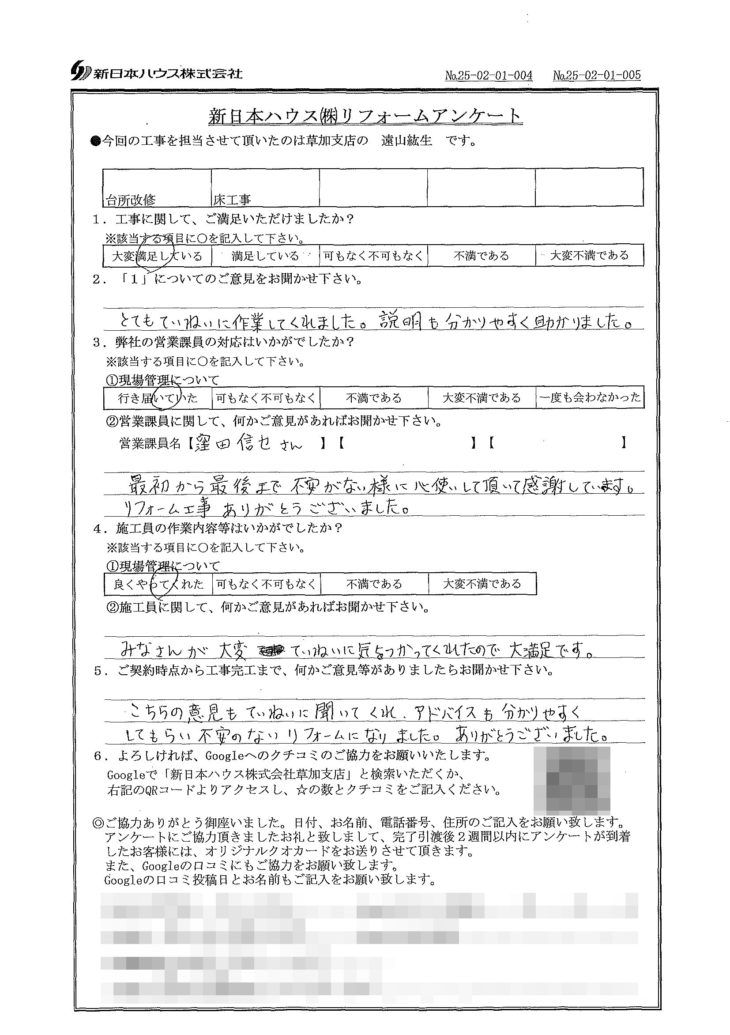 新日本ハウス株式会社
№25-02-01-004 №25-02-01-005
新日本ハウス㈱リフォームアンケート
●今回の工事を担当させて頂いたのは草加支店の 遠山紘生 です。
台所改修 床工事
1．工事に関して、ご満足いただけましたか？
※該当する項目に○を記入して下さい。
大変満足している 満足している 可もなく不可もなく 不満である 大変不満である
2．「1」についてのご意見をお聞かせ下さい。
とてもていねいに作業してくれました。説明も分かりやすく助かりました。
3．弊社の営業課員の対応はいかがでしたか？
※該当する項目に○を記入して下さい。
①現場管理について
行き届いていた 可もなく不可もなく 不満である 大変不満である 一度も会わなかった
②営業課員に関して、何かご意見があればお聞かせ下さい。
営業課員名【窪田信セさん 】【 】【 】
最初から最後まで不安がない様に心使いして頂いて感謝しています。
リフォーム工事ありがとうございました。
4．施工員の作業内容等はいかがでしたか？
※該当する項目に○を記入して下さい。
①現場管理について
良くやってくれた 可もなく不可もなく 不満である 大変不満である
②施工員に関して、何かご意見があればお聞かせ下さい。
みなさんが大変 ていねいに気をつかってくれたので大満足です。
5．ご契約時点から工事完工まで、何かご意見等がありましたらお聞かせ下さい。
こちらの意見もていねいに聞いてくれ、アドバイスも分かりやすく
してもらい不安のないリフォームになりました。ありがとうございました。
6．よろしければ、Googleへのクチコミのご協力をお願いいたします。
Googleで「新日本ハウス株式会社草加支店」と検索いただくか、
右記のQRコードよりアクセスし、☆の数とクチコミをご記入ください。
◎ご協力ありがとう御座いました。日付、お名前、電話番号、住所のご記入をお願い致します。
アンケートにご協力頂きましたお礼と致しまして、完了引渡後2週間以内にアンケートが到着
したお客様には、オリジナルクオカードをお送りさせて頂きます。
また、Googleの口コミにもご協力をお願い致します。
Googleの口コミ投稿日とお名前もご記入をお願い致します。